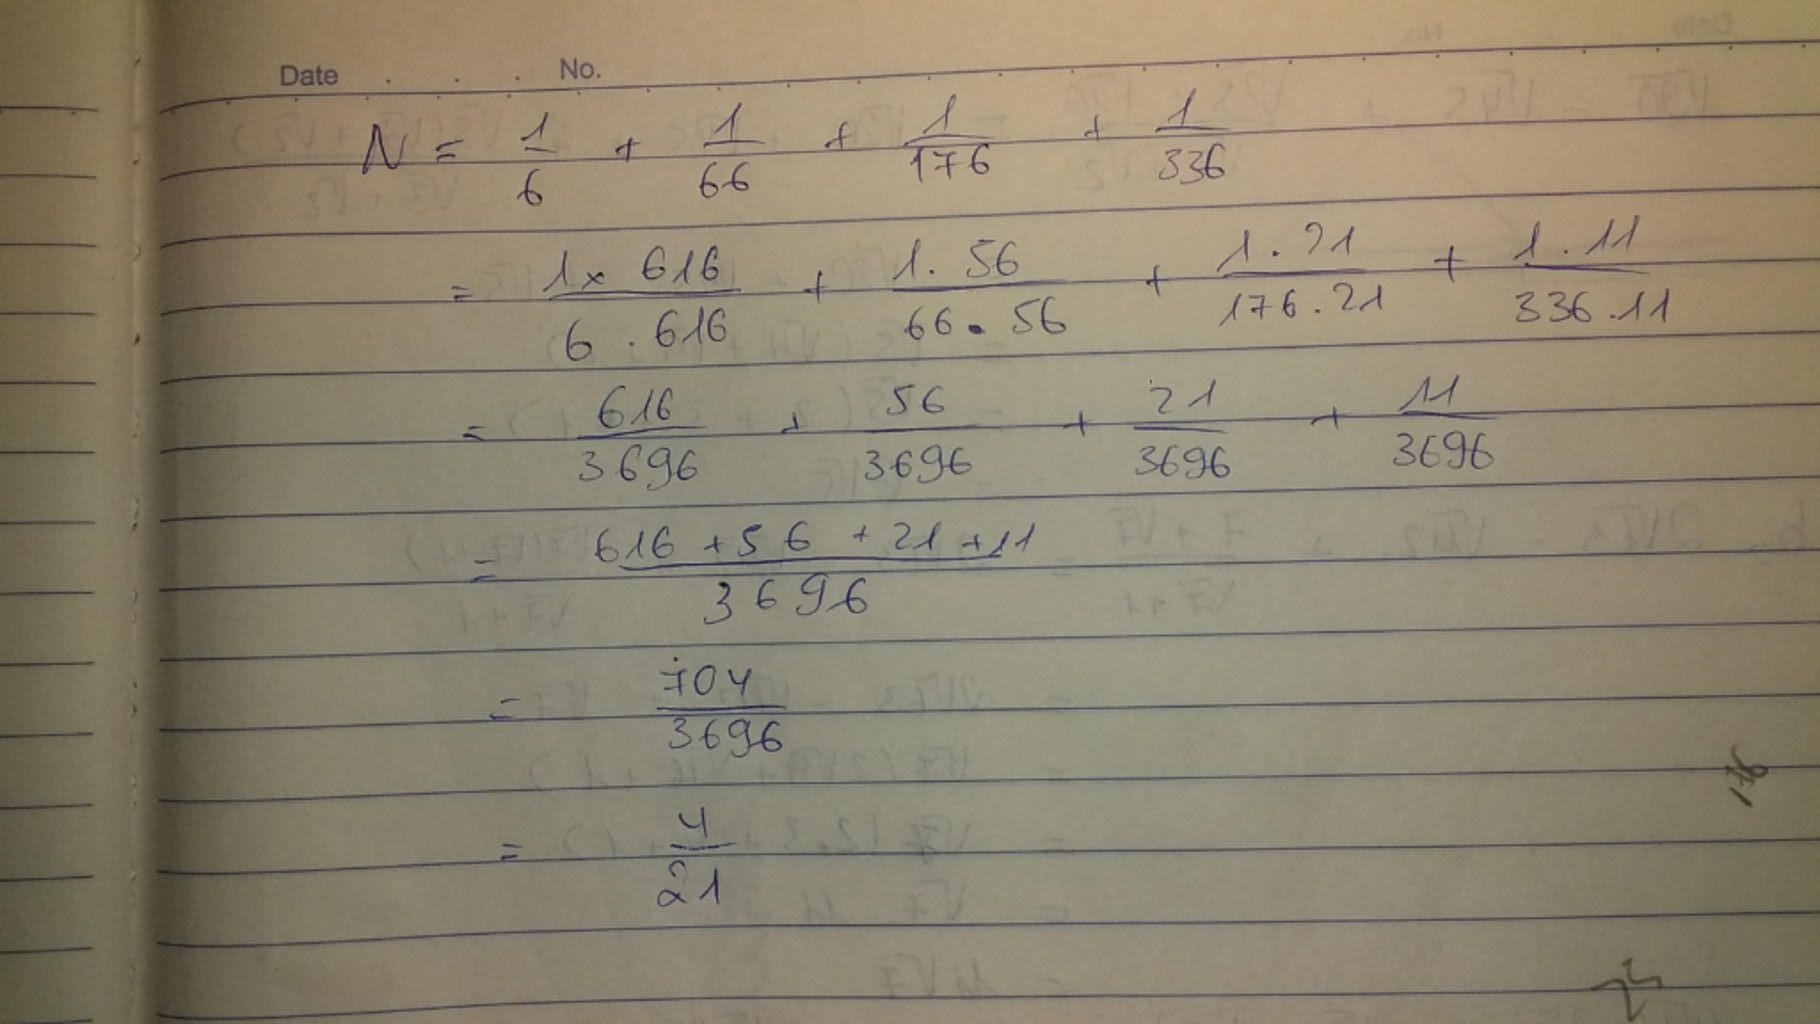 Date . . . No.
N = 1/6 + 1/66 + 1/176 + 1/336
= 1 x 616 / 6 . 616 + 1 . 56 / 66 . 56 + 1 . 21 / 176 . 21 + 1 . 11 / 336 . 11
= 616/3696 + 56/3696 + 21/3696 + 11/3696
= 616 + 56 + 21 + 11 / 3696
= 704/3696
= 4/21